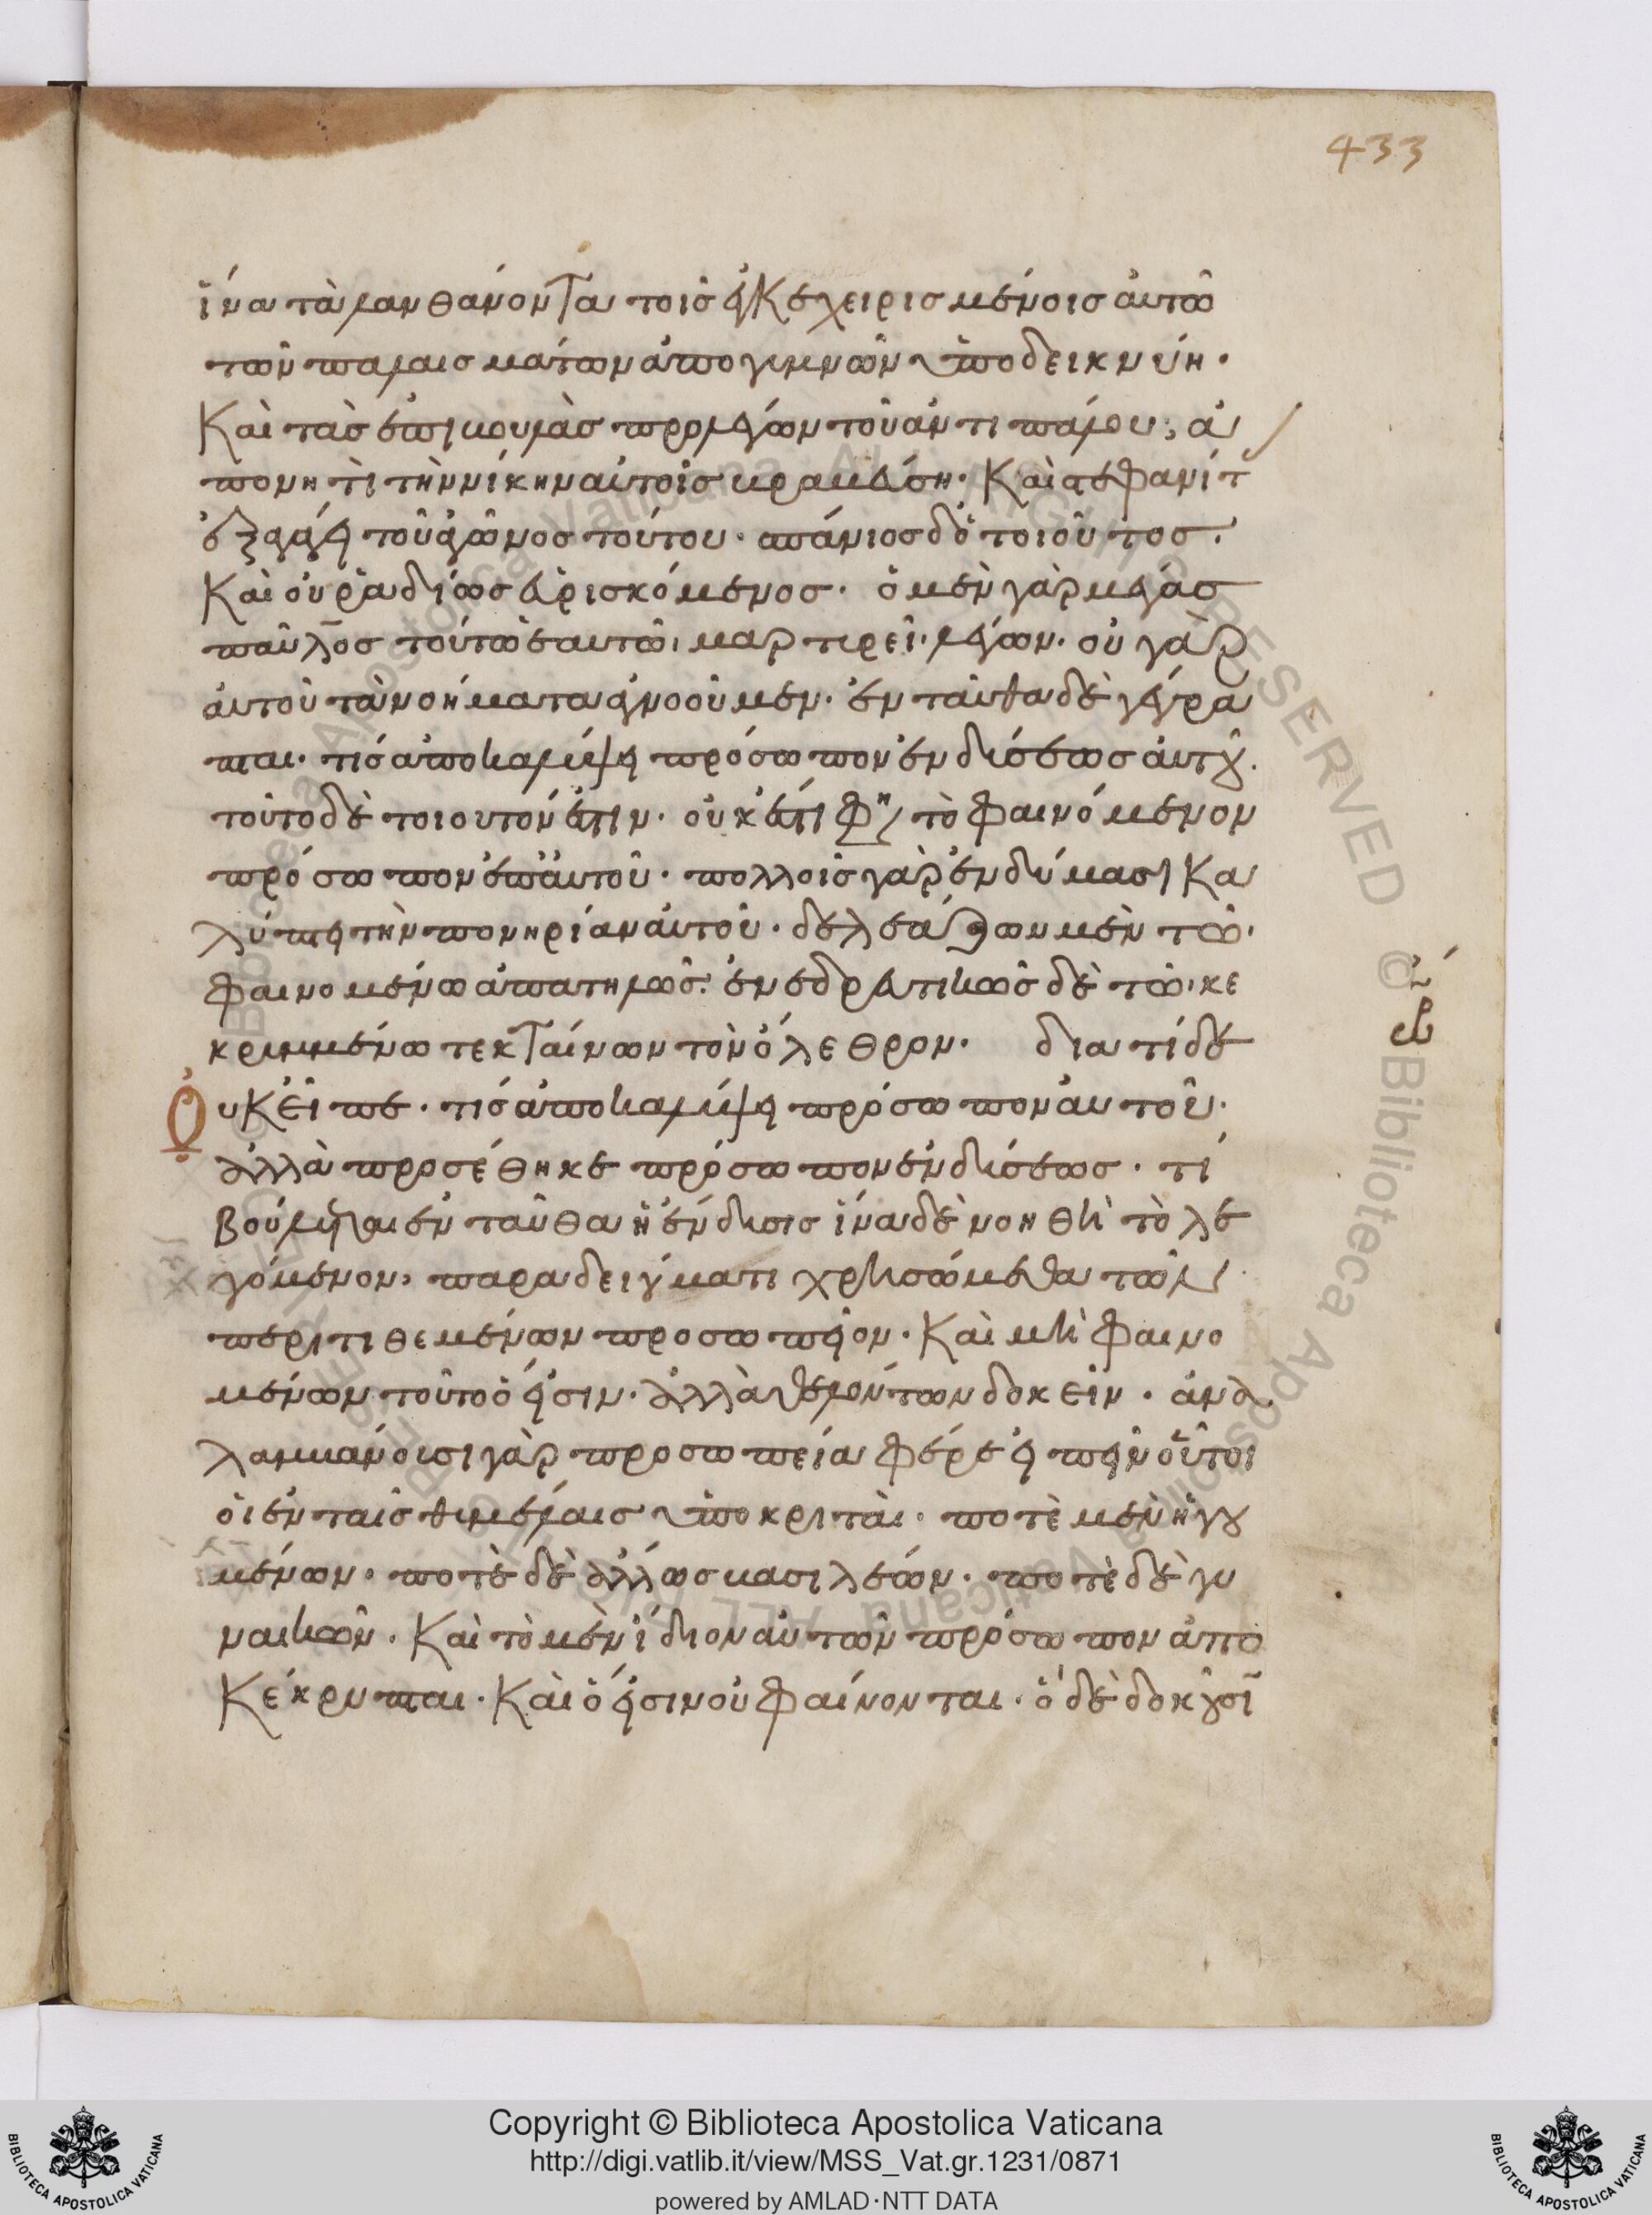 433
ἵνα τὰ λανθάνοντα τοῖς ἐγκεχειρισμένοις αὐτῶ
τῶν παλαισμάτων ἀπογυμνῶν ὑποδεικνύη.
Καὶ τὰς ἐπιβουλὰς προλέγων τοῦ ἀντιπάλου, ἀ
πονητὶ τὴν νίκην αὐτοῖς βραβεύση. Καὶ στεφανίτ
ἐξάγει τοῦ ἀγῶνος τούτου. σπάνιος δὲ ὁ τοιοῦτος.
Καὶ οὐ ῥαδίως εὑρισκόμενος. ὁ μὲν γὰρ μέγας
παῦλος τοῦτο ἑαυτῶ μαρτυρεῖ. λέγων. οὐ γὰρ
αὐτοῦ τὰ νοήματα ἀγνοοῦμεν. ἐνταῦθα δὲ γέγρα
πται. τίς ἀποκαλύψει πρόσωπον ἐνδύσεως αὐτοῦ.
τοῦτο δὲ τοιοῦτόν ἐστιν. οὐκ ἔστι φη τὸ φαινόμενον
πρόσωπον ἐπ' αὐτοῦ. πολλοῖς γὰρ ἐνδύμασι Κα
λύπτει τὴν πονηρίαν αὐτοῦ. δελεάζων μὲν τῶ
φαινομένω ἀπατηλῶς. ἐνεδρευτικῶς δὲ τῶ κε
κρυμμένω τεκταίνων τὸν ὄλεθρον. διατί δὲ
Οὐκ εἶπε. τίς ἀποκαλύψει πρόσωπον αὐτοῦ.
ἀλλὰ προσέθηκε πρόσωπον ἐνδύσεως. τί
βούλεται ἐνταῦθα ἡ ἔνδυσις ἵνα δὲ νοηθῆ τὸ λε
γόμενον, παραδείγματι χρησώμεθα τῶν
περιτιθεμένων προσωπεῖον. Καὶ μὴ φαινο
μένων τοῦτο ὅ εἰσιν. ἀλλὰ θελόντων δοκεῖν. ἀνα
λαμβάνουσι γὰρ προσωπεῖα φέρε εἰπεῖν οὗτοι
οἱ ἐν ταῖς θυμέλαις ὑποκριταί. ποτὲ μὲν ἡγου
μένων. ποτὲ δὲ ἄλλως βασιλέων. ποτὲ δὲ γυ
ναικῶν. Καὶ τὸ μὲν ἴδιον αὐτῶν πρόσωπον ἀπο
Κέκρυπται. Καὶ ὅ εἰσιν οὐ φαίνονται. ὃ δὲ δοκοῦσῖ
Copyright © Biblioteca Apostolica Vaticana
http://digi.vatlib.it/view/MSS_Vat.gr.1231/0871
powered by AMLAD·NTT DATA
BIBLIOTECA APOSTOLICA VATICANA
BIBLIOTECA APOSTOLICA VATICANA